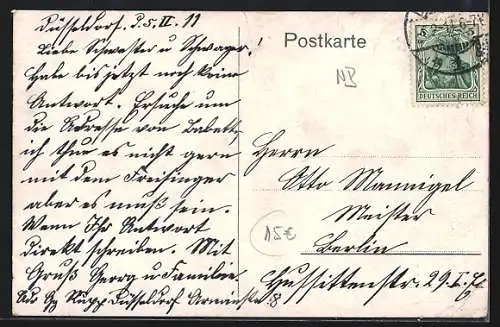 Düsseldorf. d. 5. II. 11
Liebe Schwester u Schwager!
Habe bis jetzt noch keine
Antwort. Ersuche um
die Adresse von Babett,
ich thue es nicht gern
mit dem Freisinger
aber es muß sein.
Wenn Ihr Antwort
direkt schreiben. Mit
Gruß Georg u Familie
Adr. Gg Rupp Düsseldorf Arminstr 8
Postkarte
NB
5
DEUTSCHES REICH
Herrn
Otto Mannigel
Meister
Berlin
15€
Hussittenstr. 29. I.